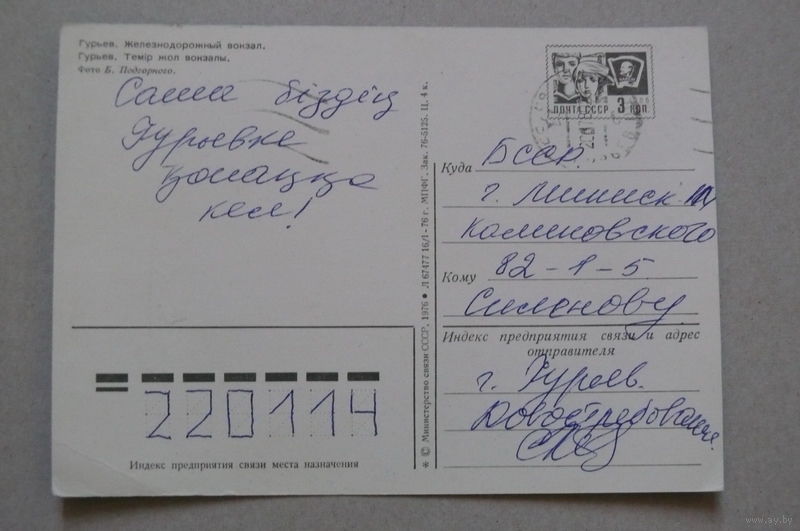 Гурьев. Железнодорожный вокзал.
Гурьев. Темір жол вокзалы.
Фото Б. Подгорного.
Саша біздің
Гурьевке
қонаққа
кел!
* © Министерство связи СССР, 1976 • Л 67477 16/I-76 г. МПФГ. Зак. 76-5125. Ц. 4 к.
ПОЧТА СССР 3 КОП.
Куда БССР
г. Минск
Калиновского
82-1-5
Кому
Симонову
Индекс предприятия связи и адрес
отправителя
г. Гурьев.
Довостребования
220114
Индекс предприятия связи места назначения
www.ay.by